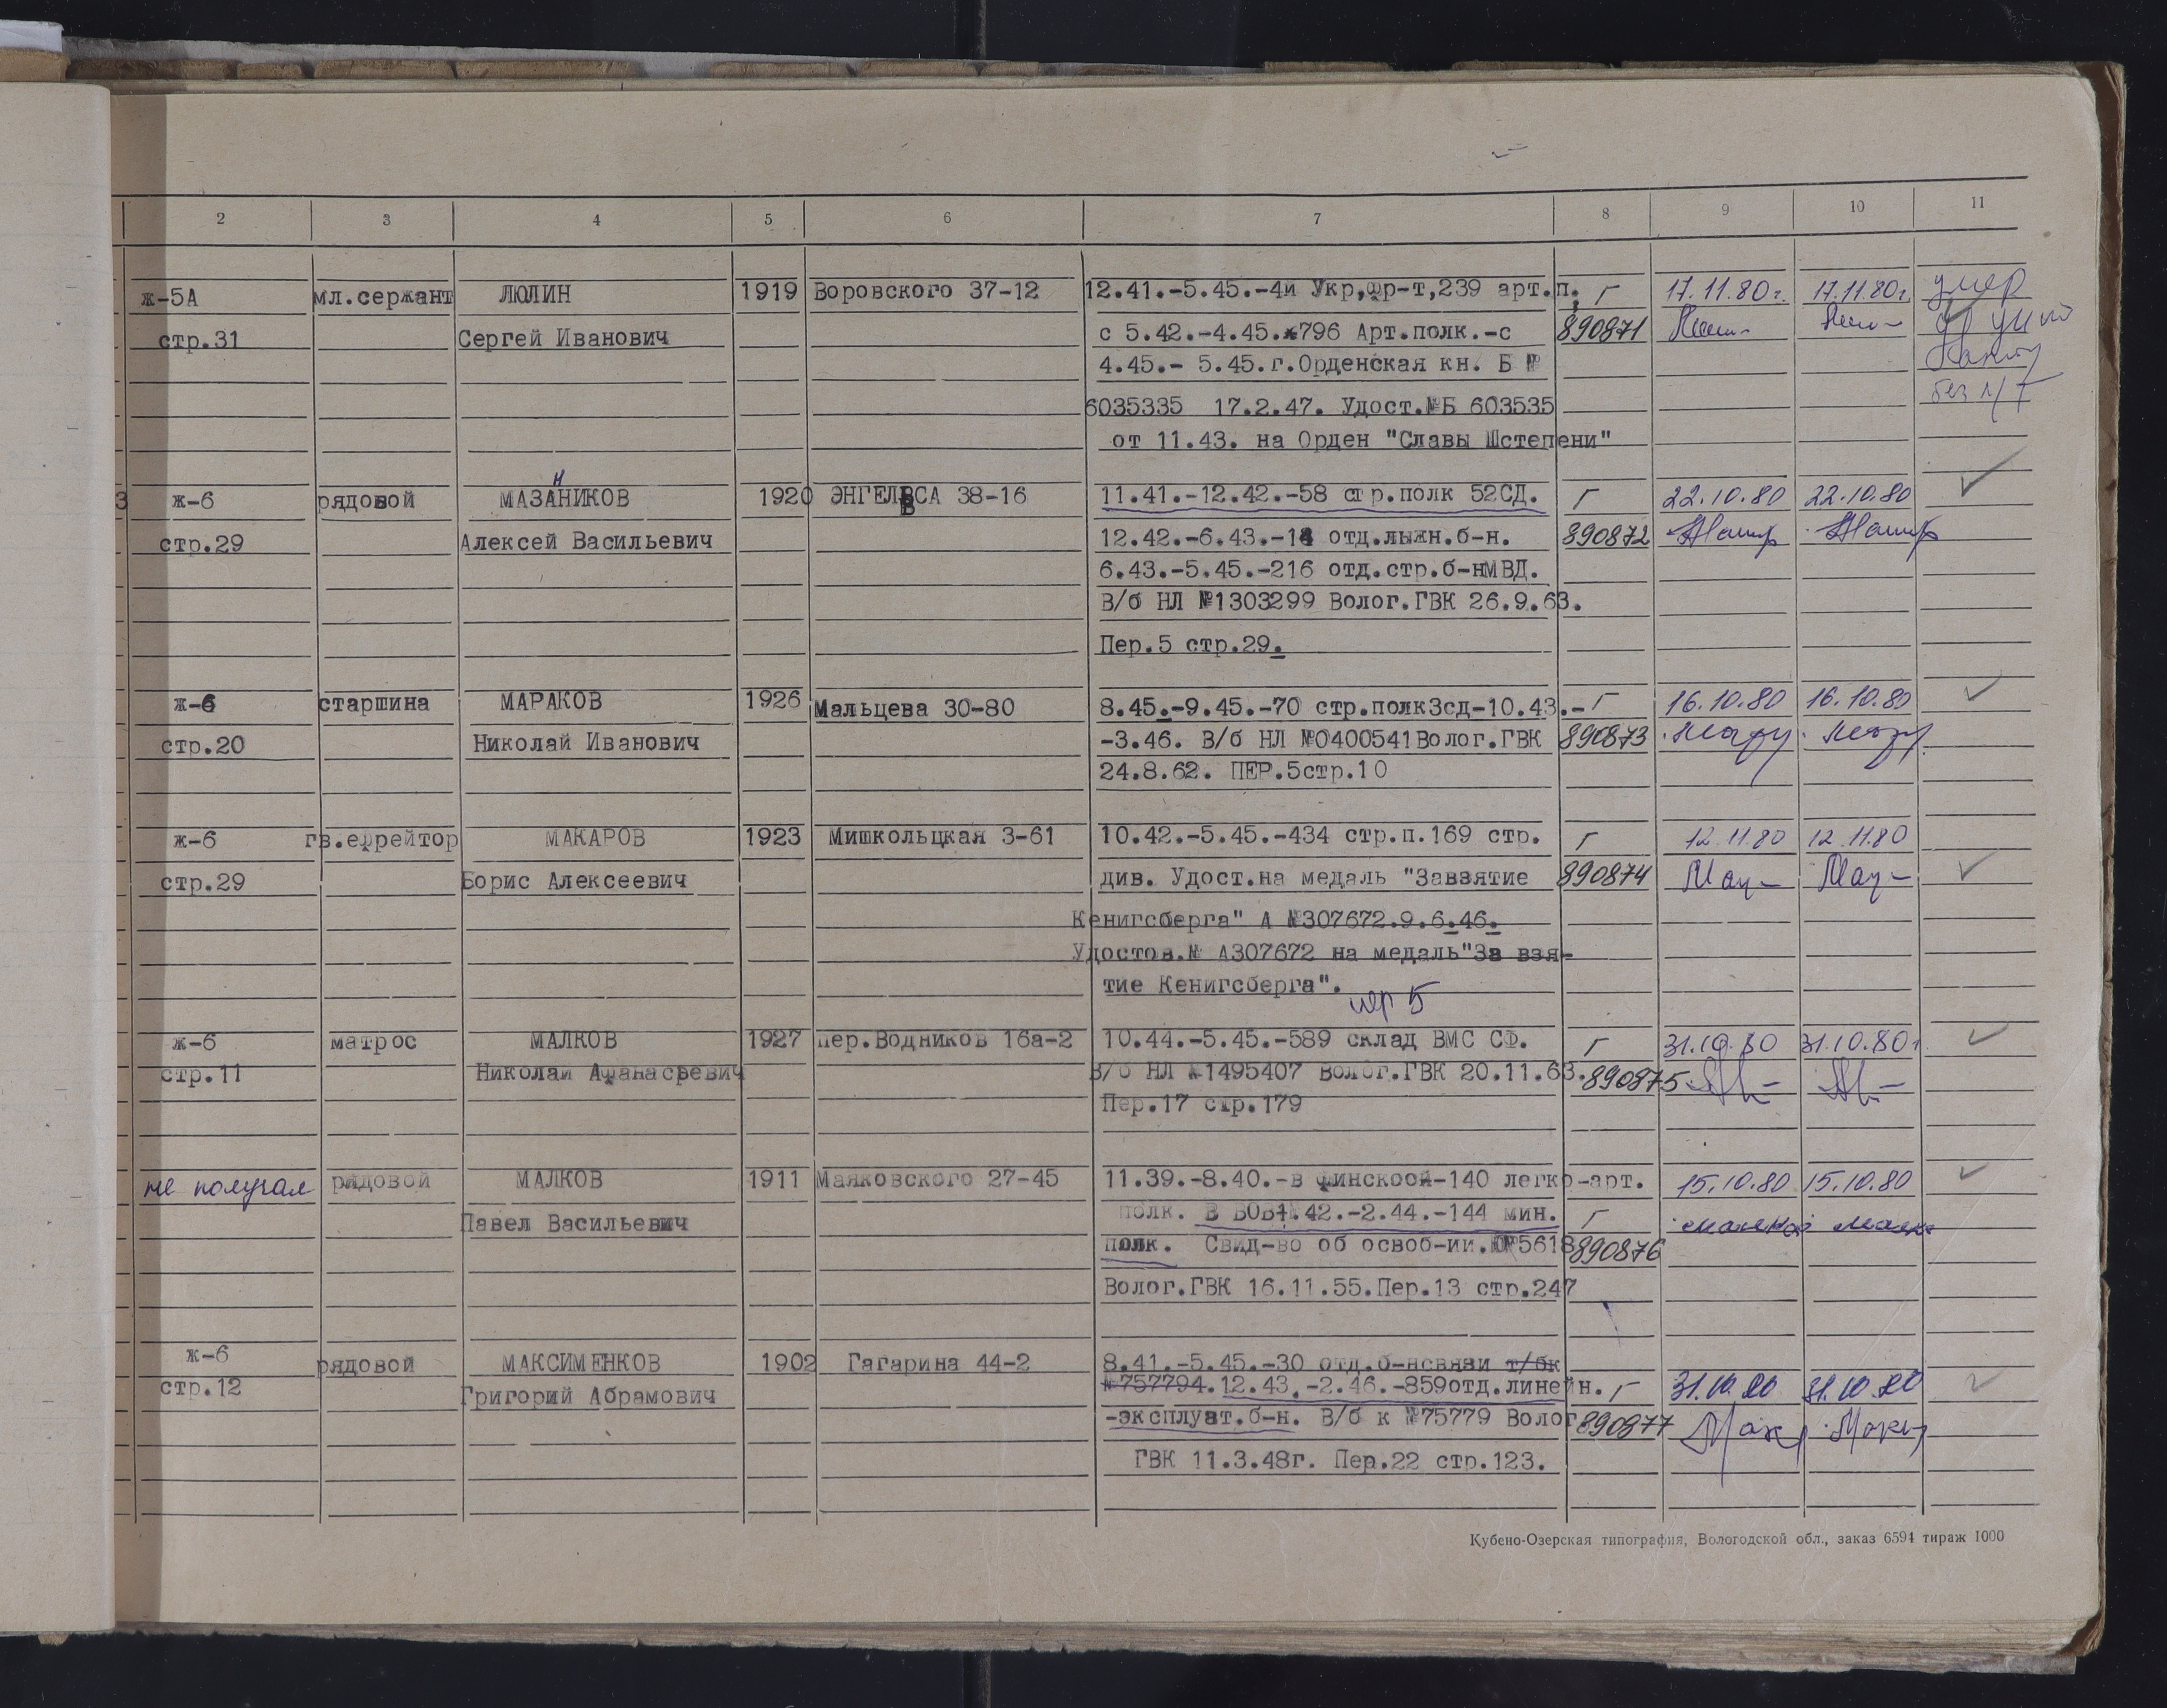 2 3 4 5 6 7 8 9 10 11
ж-5А мл.сержант ЛЮЛИН 1919 Воровского 37-12 12.41.-5.45.-4й Укр,фр-т,239 арт.п. Г 17.11.80г. 17.11.80г. умер
стр.31 Сергей Иванович с 5.42.-4.45.-796 Арт.полк.-с 890871
4.45.- 5.45.г.Орденская кн. Б №
6035335 17.2.47. Удост.№Б 603535 без
от 11.43. на Орден "Славы Шстепени"
3 ж-6 рядовой МАЗАНИКОВ 1920 ЭНГЕЛЬСА 38-16 11.41.-12.42.-58 стр.полк 52СД. Г 22.10.80 22.10.80
стр.29 Алексей Васильевич 12.42.-6.43.-18 отд.лыжн.б-н. 890872
6.43.-5.45.-216 отд.стр.б-нМВД.
В/б НЛ №1303299 Волог.ГВК 26.9.63.
Пер.5 стр.29.
ж-6 старшина МАРАКОВ 1926 Мальцева 30-80 8.45.-9.45.-70 стр.полк3сд-10.43.- Г 16.10.80 16.10.80
стр.20 Николай Иванович -3.46. В/б НЛ №0400541Волог.ГВК 890873
24.8.62. ПЕР.5стр.10
ж-6 гв.ефрейтор МАКАРОВ 1923 Мишкольцкая 3-61 10.42.-5.45.-434 стр.п.169 стр. Г 12.11.80 12.11.80
стр.29 Борис Алексеевич див. Удост.на медаль "Завзятие 890874
Кенигсберга" А №307672.9.6.46.
Удостов.№ А307672 на медаль"За взя-
тие Кенигсберга".
пер 5
ж-6 матрос МАЛКОВ 1927 пер.Водников 16а-2 10.44.-5.45.-589 склад ВМС СФ. Г 31.10.80 31.10.80г.
стр.11 Николай Афанасьевич В/б НЛ №1495407 Волог.ГВК 20.11.63. 890875
Пер.17 стр.179
не получал рядовой МАЛКОВ 1911 Маяковского 27-45 11.39.-8.40.-в финскоой-140 легко-арт. 15.10.80 15.10.80
Павел Васильевич полк. В ВОВ1.42.-2.44.-144 мин. Г
полк. Свид-во об освоб-ии.№5618 890876
Волог.ГВК 16.11.55.Пер.13 стр.247
ж-6 рядовой МАКСИМЕНКОВ 1902 Гагарина 44-2 8.41.-5.45.-30 отд.б-нсвязи т/бк
стр.12 Григорий Абрамович №757794.12.43.-2.46.-859отд.линейн. Г 31.10.80 31.10.80
-эксплуат.б-н. В/б к №75779 Волог 890877
ГВК 11.3.48г. Пер.22 стр.123.
Кубено-Озерская типография, Вологодской обл., заказ 6594 тираж 1000